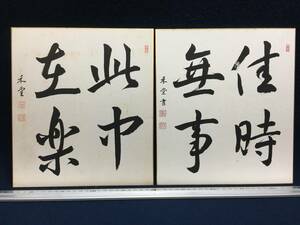 佳時
無事
禾堂書
此中
在楽
禾堂